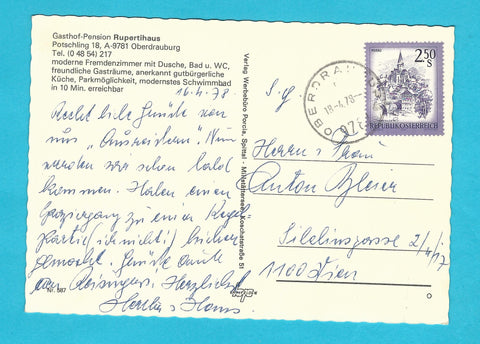 Gasthof-Pension Rupertihaus
Potschling 18, A-9781 Oberdrauburg
Tel. (0 48 54) 217
moderne Fremdenzimmer mit Dusche, Bad u. WC,
freundliche Gasträume, anerkannt gutbürgerliche
Küche, Parkmöglichkeit, modernstes Schwimmbad
in 10 Min. erreichbar
16.4.78.
Recht liebe Grüße von
uns „Ausreißern". Nun
werden wir schon bald
kommen. Haben einen
Spaziergang zu einer Kegel
Partie (ich nicht) hierher
gemacht. Grüße auch
an Reisingers. Herzlichst
Hertha u Hans
Nr. 567
Verlag Werbebüro Porcia, Spittal - Millstättersee, Koschatstraße 51
S.g.
Herrn u. Frau
Anton Bleier
Sibeliusgasse 2/4/17
1100 Wien
OBERDRAUBURG
18-4.78
2.50
S
REPUBLIK ÖSTERREICH